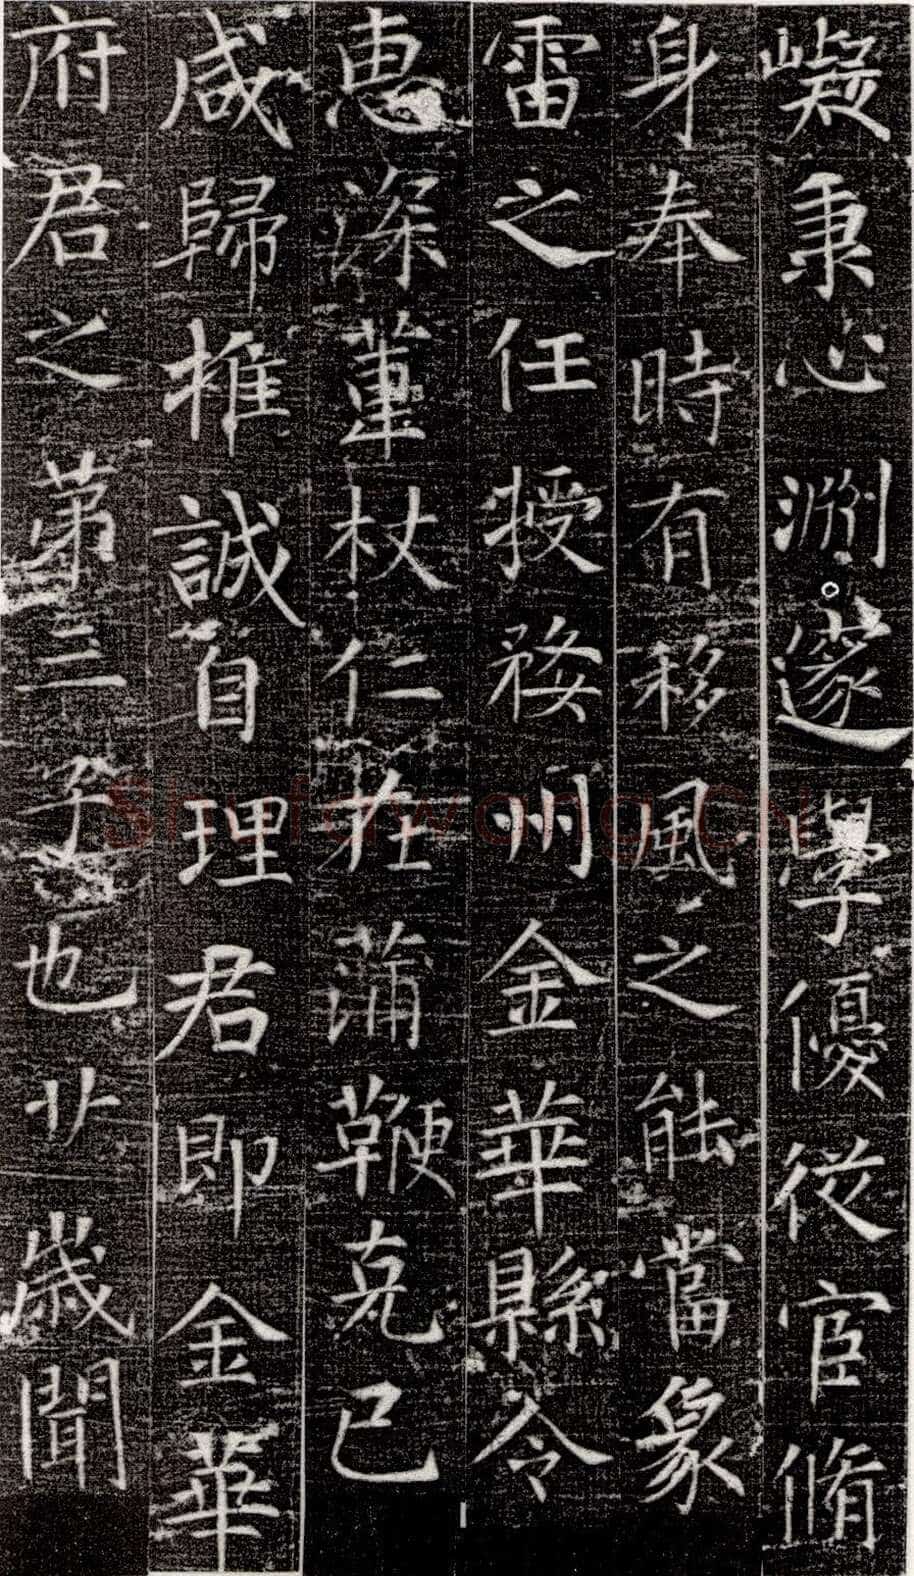 嶷秉心渊邃學優從宦脩
身奉時有移風之能當象
雷之任授婺州金華縣令
惠深董杖仁莅蒲鞭克己
咸歸推誠自理君即金華
府君之第三子也廿歲聞
Shufawang.CN